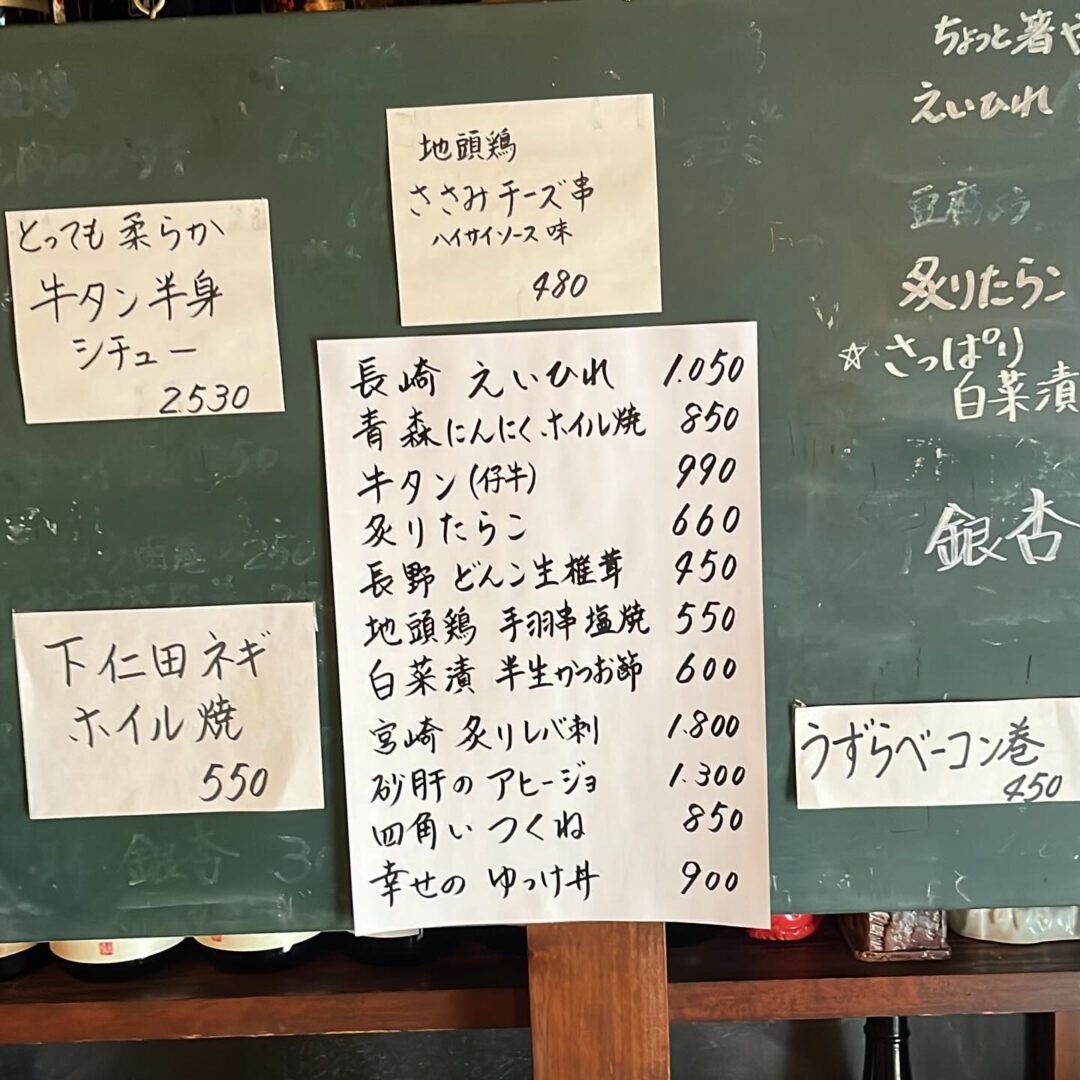 とっても柔らか
牛タン半身
シチュー
2.530
下仁田ネギ
ホイル焼
550
地頭鶏
ささみチーズ串
ハイサイソース味
480
長崎 えいひれ 1.050
青森にんにくホイル焼 850
牛タン(仔牛) 990
炙りたらこ 660
長野 どんコ生椎茸 450
地頭鶏 手羽串塩焼 550
白菜漬 半生かつお節 600
宮崎 炙りレバ刺 1.800
砂肝の アヒージョ 1.300
四角い つくね 850
幸せの ゆっけ丼 900
ちょっと箸や
えいひれ
豆腐よう
炙りたらこ
☆さっぱり
白菜漬
銀杏
うずらベーコン巻
450
銀杏 3